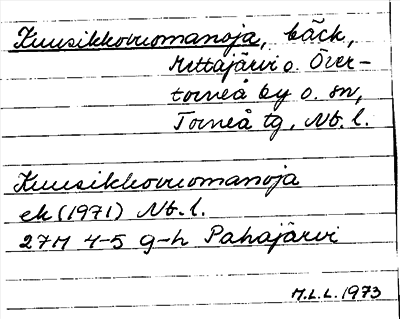 Kuusikkovuomanoja, bäck,
Mettäjärvi o. Över-
torneå by o. sn,
Torneå tg, Nb. l.
Kuusikkovuomanoja
ek (1971) Nb. l.
27M 4-5 g-h Pahajärvi
M.L.L. 1973